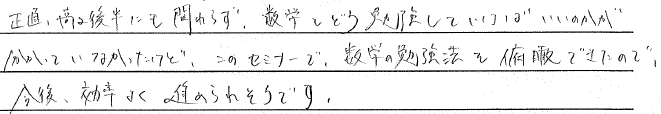 正直、高2後半にも関わらず、数学をどう勉強していけばいいのかが
分かっていなかったけど、このセミナーで、数学の勉強法を俯瞰できたので、
今後、効率よく進められそうです。